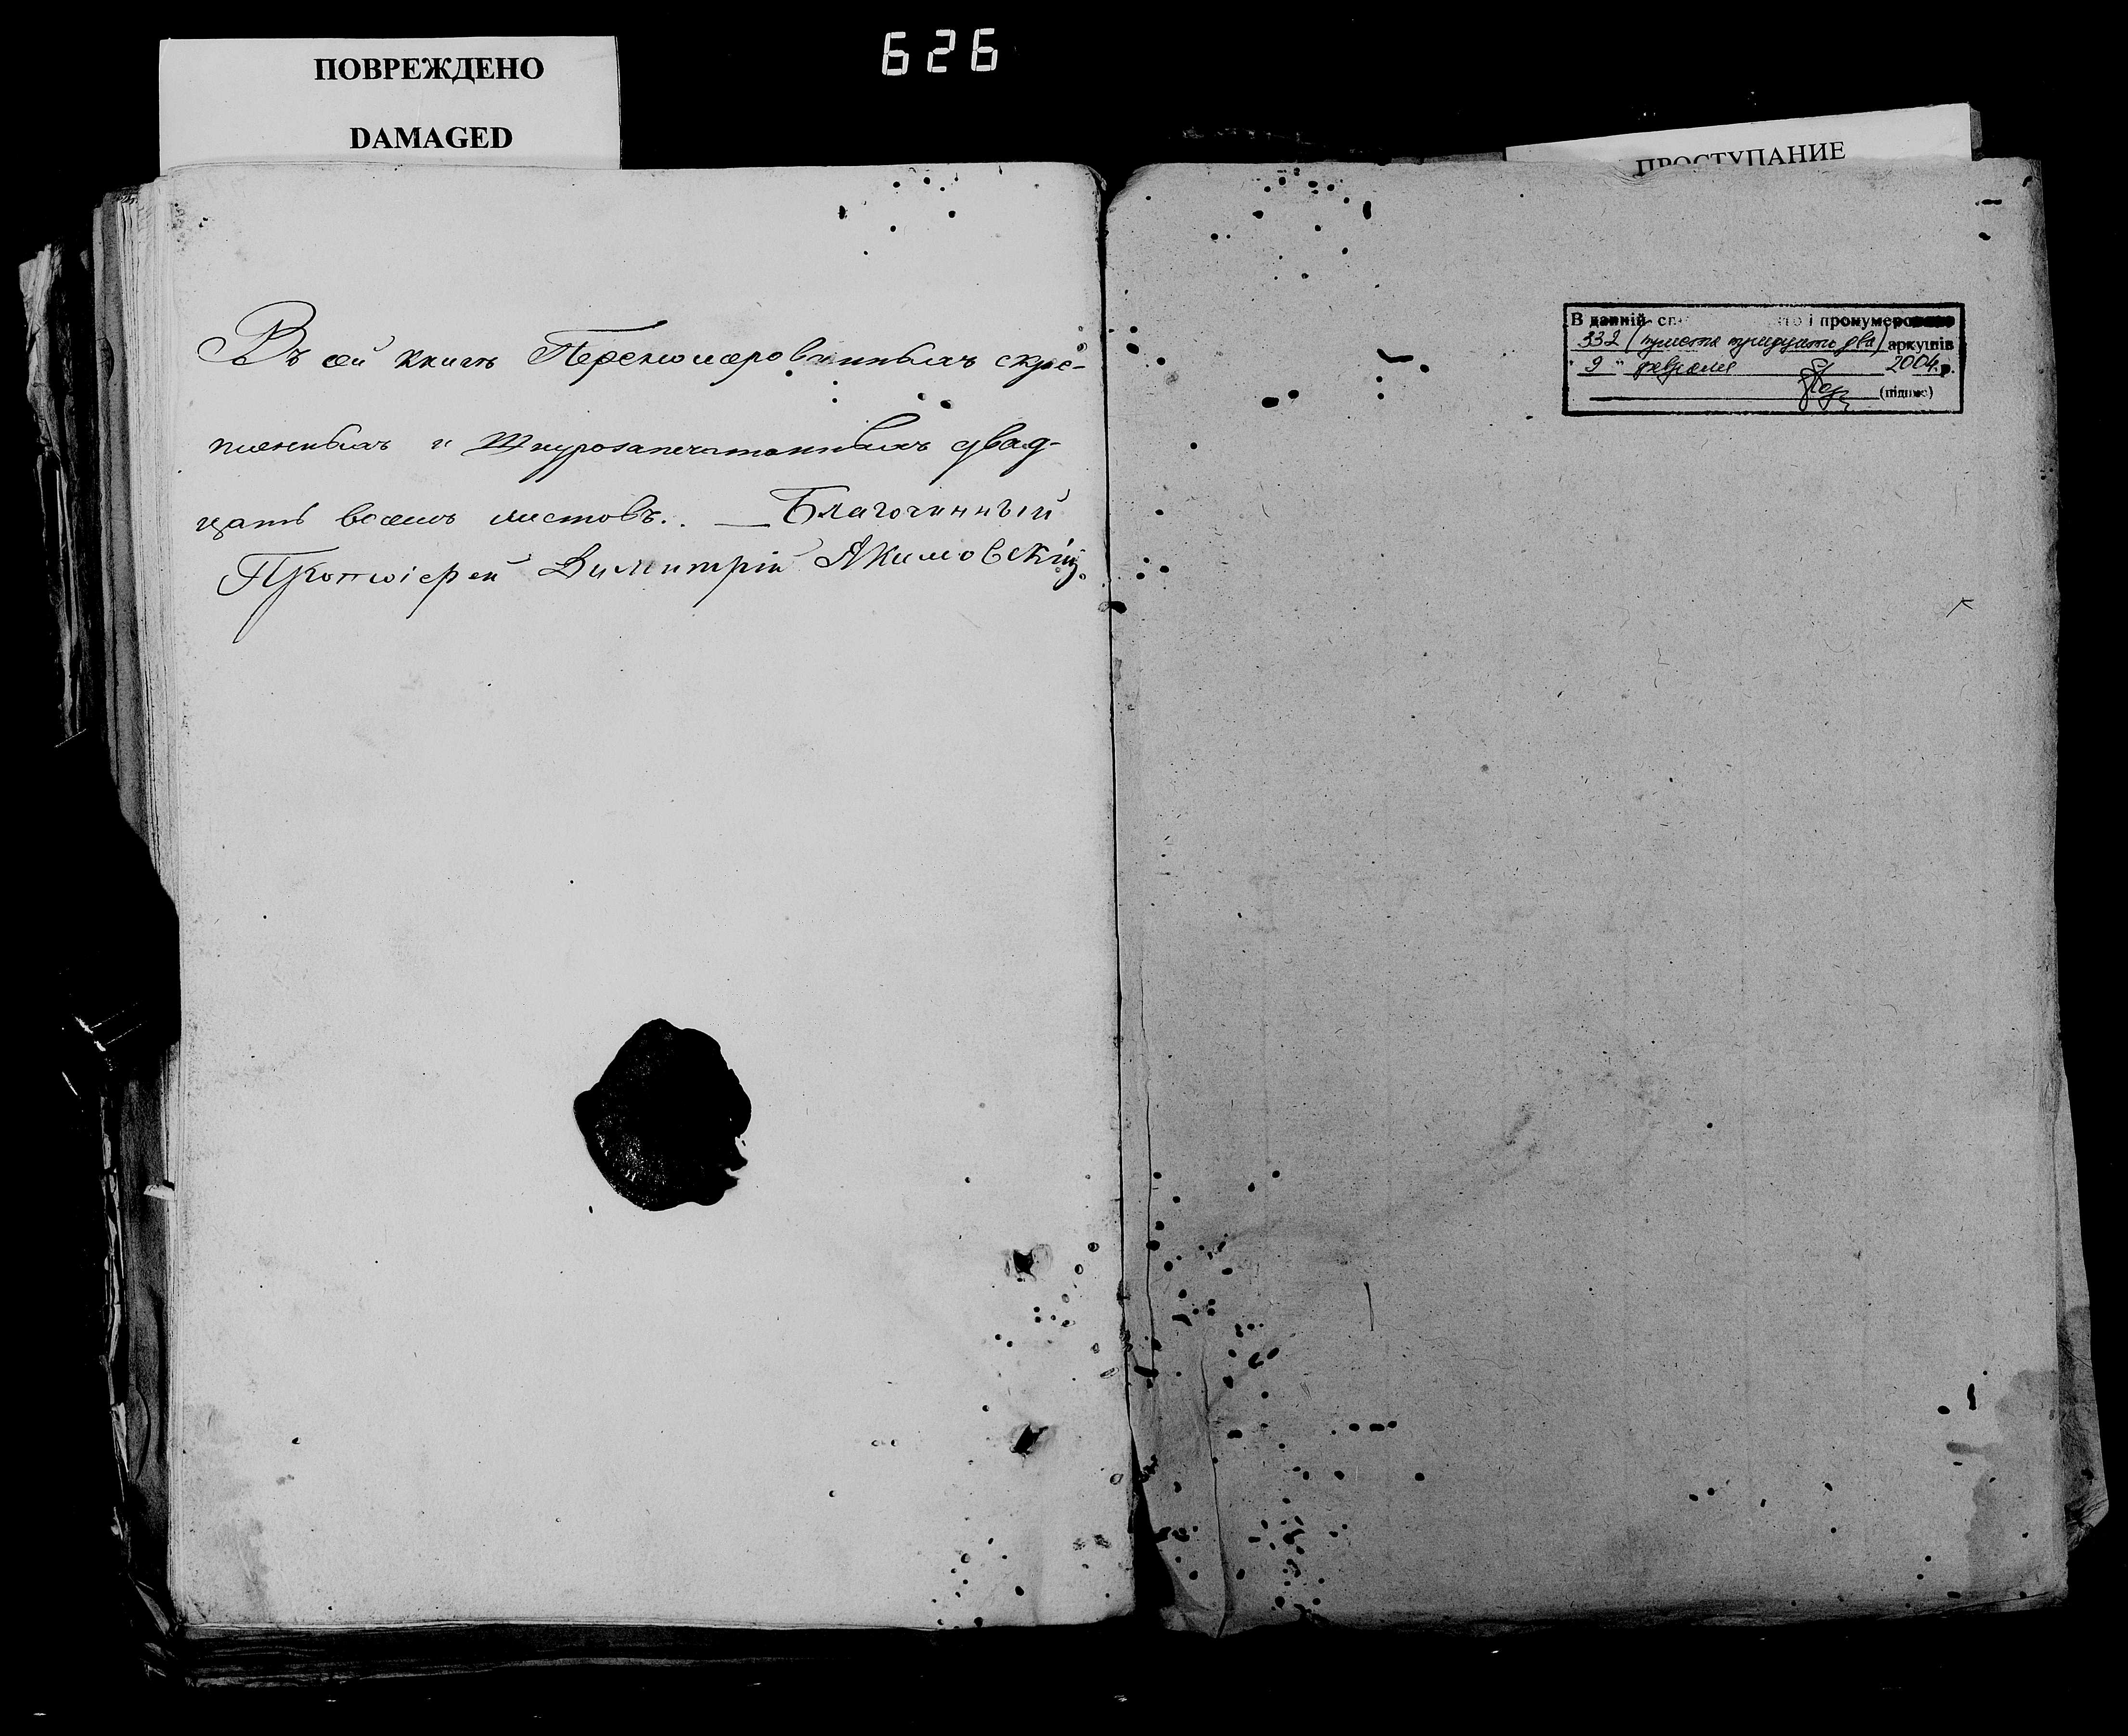 ПОВРЕЖДЕНО
DAMAGED
626
ПРОСТУПАНИЕ
Въ сей книгѣ Перенумерованныхъ скрѣ-
пленныхъ и Шнурозапечатанныхъ двад-
цать восемь листовъ. — Благочинный
Протоіерей Димитрій Якимовскій.
В данній сп то і пронумеровано
332 (триста тридцать два) аркушів
" 9 " февраля 2004 р.
(підпис)